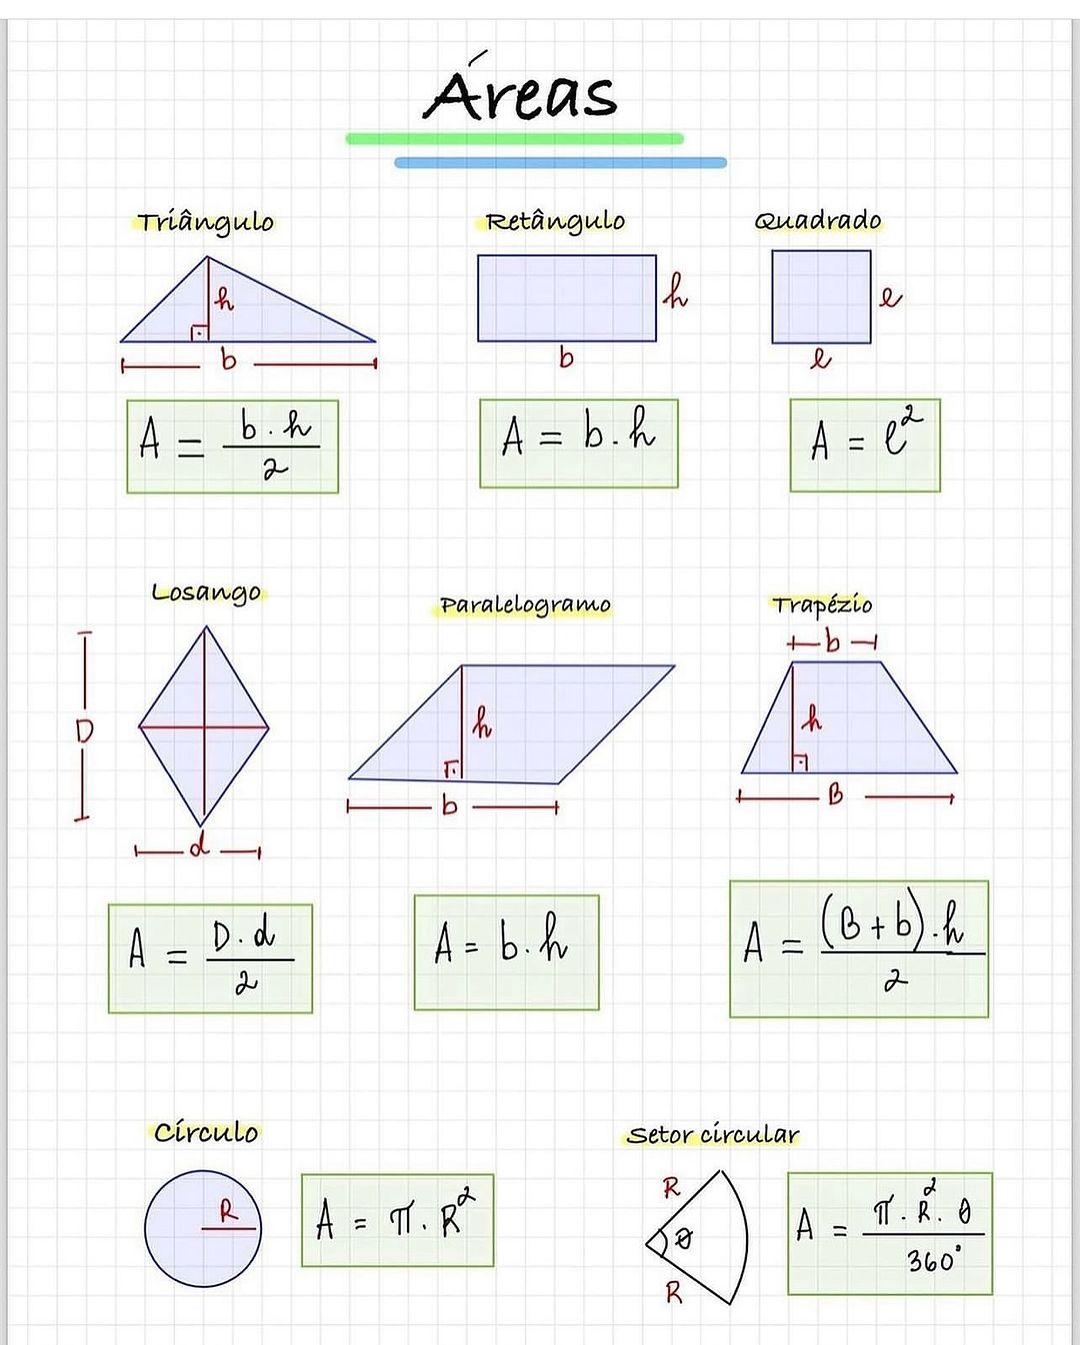 Áreas
Triângulo
h
b
A = b . h / 2
Retângulo
h
b
A = b . h
Quadrado
l
l
A = l²
Losango
D
d
A = D . d / 2
Paralelogramo
h
b
A = b . h
Trapézio
b
h
B
A = (B + b) . h / 2
Círculo
R
A = π . R²
Setor circular
R
θ
R
A = π . R² . θ / 360°